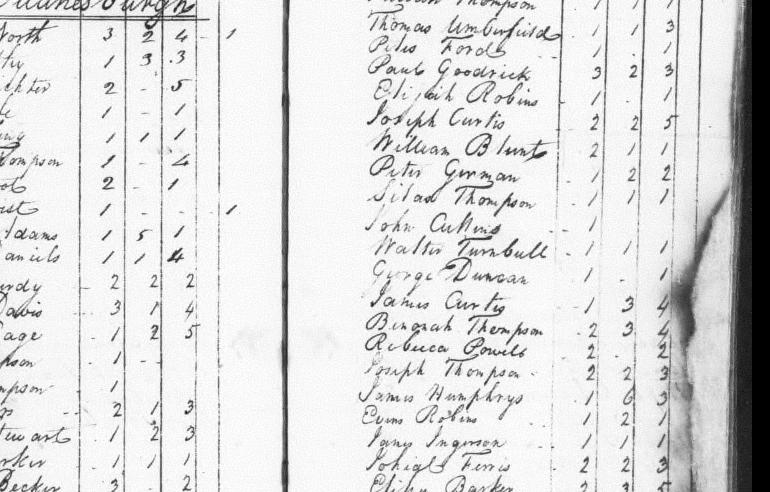 Duanesburgh
North 3 2 4 - 1
1 3 3
2 - 5
1 - 1
1 1 1
Thompson 1 - 4
2 - 1
1 - - 1
Adams 1 5 1
Daniels 1 1 4
2 2 2
Davis 3 1 4
Page 1 2 5
1 -
Thompson 1
2 1 3
Stewart 1 2 3
1 1 1
Becker 3 - 2
Thompson 1 - 1
Thomas Umberfield 1 1 3
Piles Ford 1 - 1
Paul Goodrick 3 2 3
Elijah Robins 1 - 1
Joseph Curtis 2 2 5
William Blunt 2 1 1
Peter German 1 2 2
Silas Thompson 1 1 1
John Cullins 1
Walter Turnbull 1 1 1
George Duncan 1 - 1
James Curtis 1 3 4
Benonah Thompson 2 3 4
Rebecca Powell 2 - 2
Joseph Thompson 2 2 3
James Humphrys 1 6 3
Evens Robins 1 2 1
James Ingerson 1 1 1
Ferris 2 2 3
Barker 2 3 5